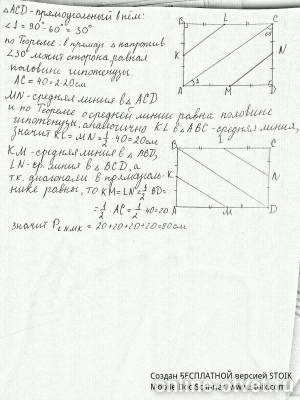 △ACD - прямоугольный в нём:
∠1 = 90° - 60° = 30°
по теореме: в прямоуг. напротив
∠30° лежит сторона, равная
половине гипотенузы.
AC = 40 = 2·20см
MN - средняя линия в △ ACD
и по теореме о средней линии равна половине
гипотенузы, аналогично KL в △ABC - средняя линия,
значит KL = MN = 1/2 · 40 = 20см
KM - средняя линия в △ ABD,
LN - ср. линия в △ BCD, а
т.к. диагонали в прямоуголь-
нике равны, то KM = LN = 1/2 BD =
= 1/2 AC = 1/2 · 40 = 20
значит P = 20+20+20+20 = 80см
B L C
60
K N
1
A M D
B L C
K N
A M D
Создан БЕСПЛАТНОЙ версией STOIK